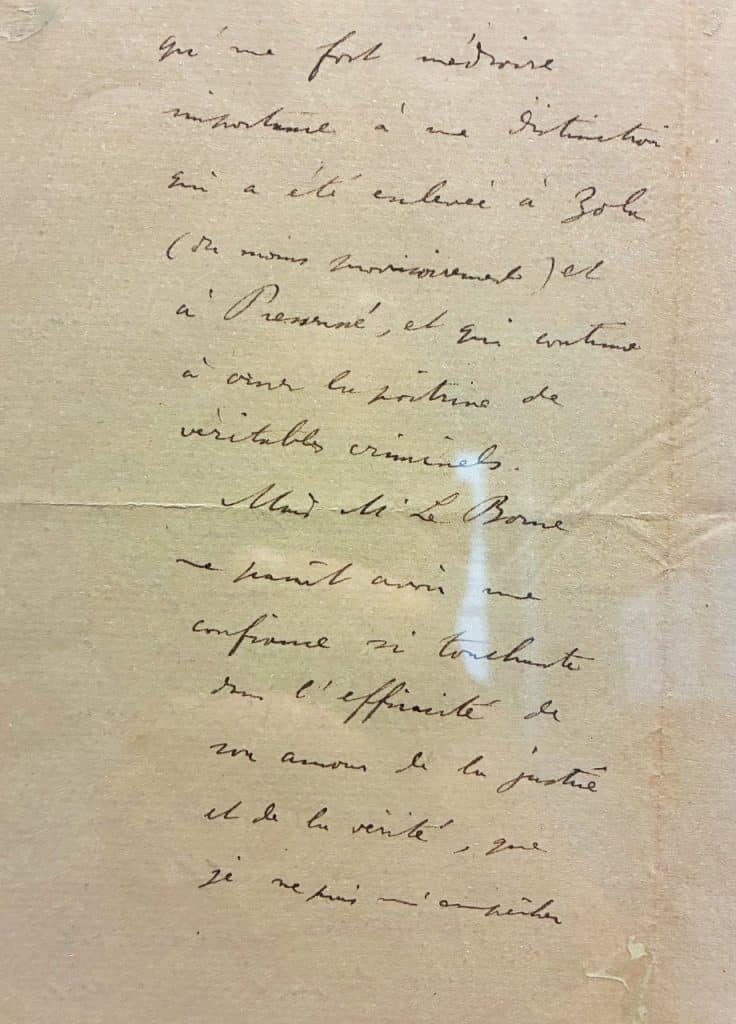 qu'une fort médiocre
importance à une distinction
qui a été enlevée à Zola
(du moins provisoirement) et
à Pressensé, et qui continue
à orner la poitrine de
véritables criminels.
Mais M. Le Borne
me paraît avoir une
confiance si touchante
dans l'efficacité de
son amour de la justice
et de la vérité, que
je ne puis m'empêcher